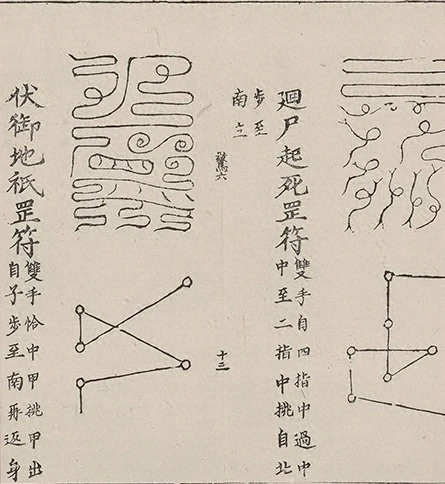 廻尸起死罡符
雙手自四指中過中
中至二指中挑自北
步至
南立
驚六
十三
伏御地祇罡符
雙手恰中甲挑甲出
自子步至南再返身